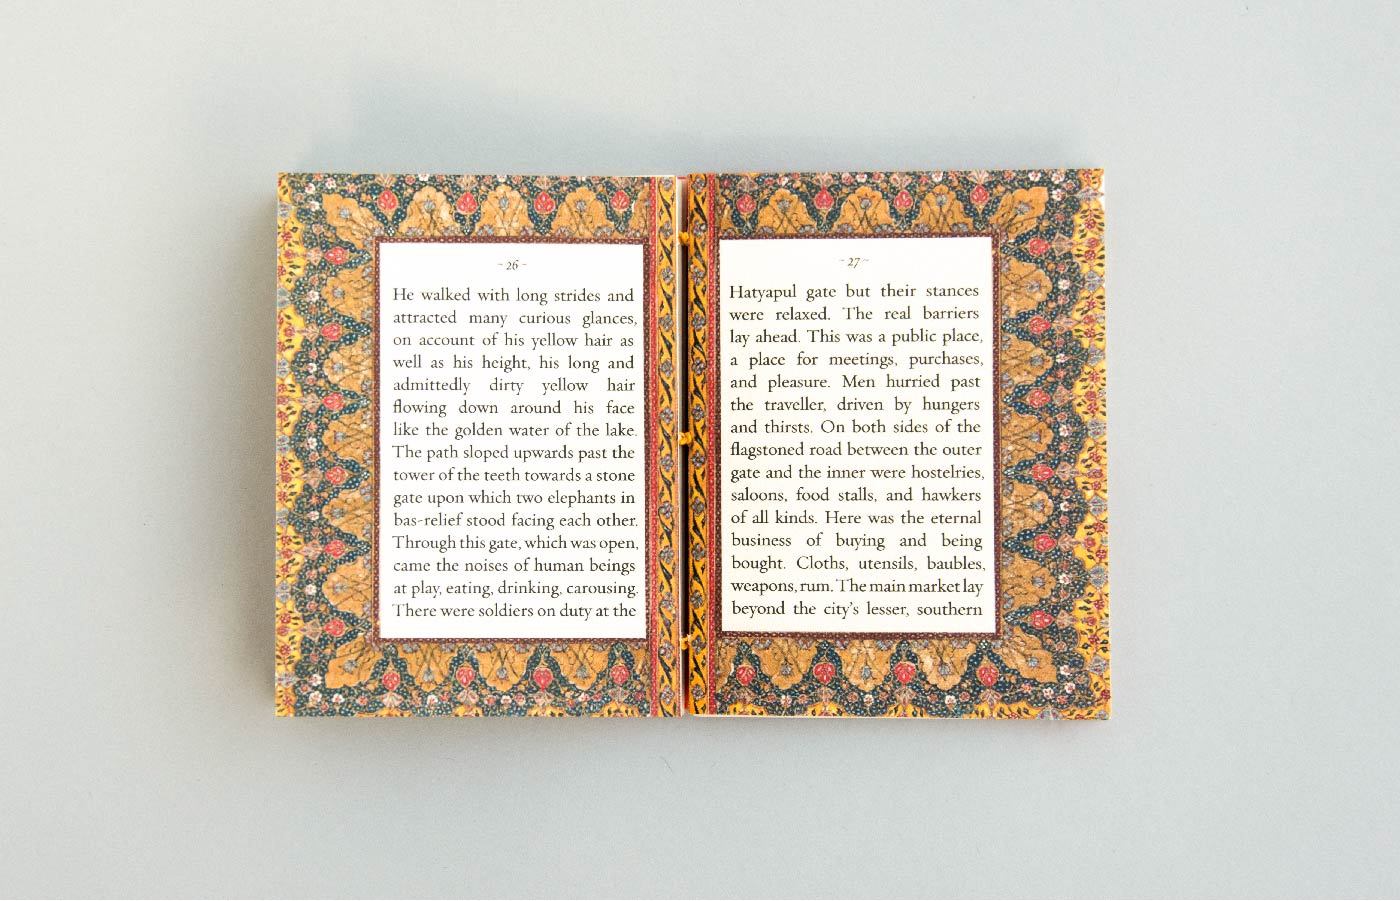 ~ 26 ~
He walked with long strides and
attracted many curious glances,
on account of his yellow hair as
well as his height, his long and
admittedly dirty yellow hair
flowing down around his face
like the golden water of the lake.
The path sloped upwards past the
tower of the teeth towards a stone
gate upon which two elephants in
bas-relief stood facing each other.
Through this gate, which was open,
came the noises of human beings
at play, eating, drinking, carousing.
There were soldiers on duty at the
~ 27 ~
Hatyapul gate but their stances
were relaxed. The real barriers
lay ahead. This was a public place,
a place for meetings, purchases,
and pleasure. Men hurried past
the traveller, driven by hungers
and thirsts. On both sides of the
flagstoned road between the outer
gate and the inner were hostelries,
saloons, food stalls, and hawkers
of all kinds. Here was the eternal
business of buying and being
bought. Cloths, utensils, baubles,
weapons, rum. The main market lay
beyond the city's lesser, southern